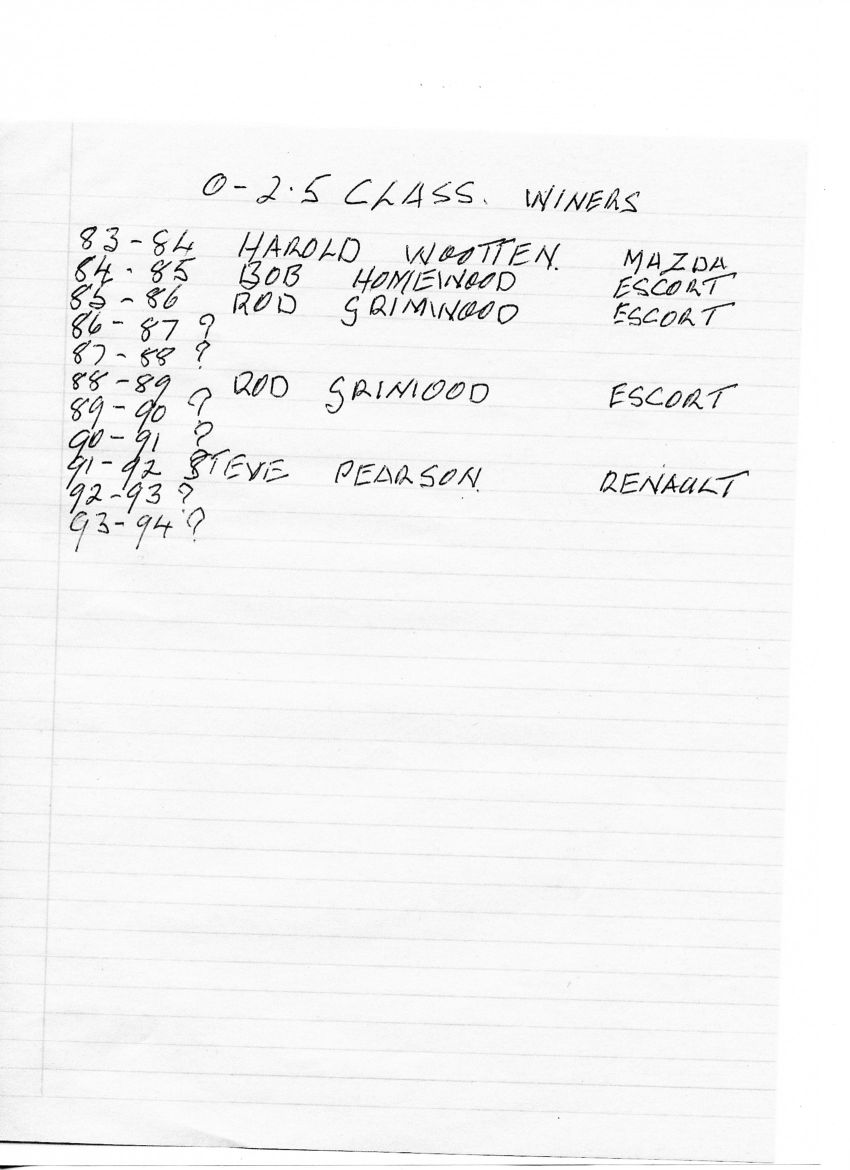 0-2.5 CLASS. WINERS
83-84 HAROLD WOOTTEN. MAZDA
84-85 BOB HOMEWOOD ESCORT
85-86 ROD GRIMWOOD ESCORT
86-87 ?
87-88 ?
88-89 ROD GRIMOOD ESCORT
89-90 ?
90-91 ?
91-92 STEVE PEARSON. RENAULT
92-93 ?
93-94 ?